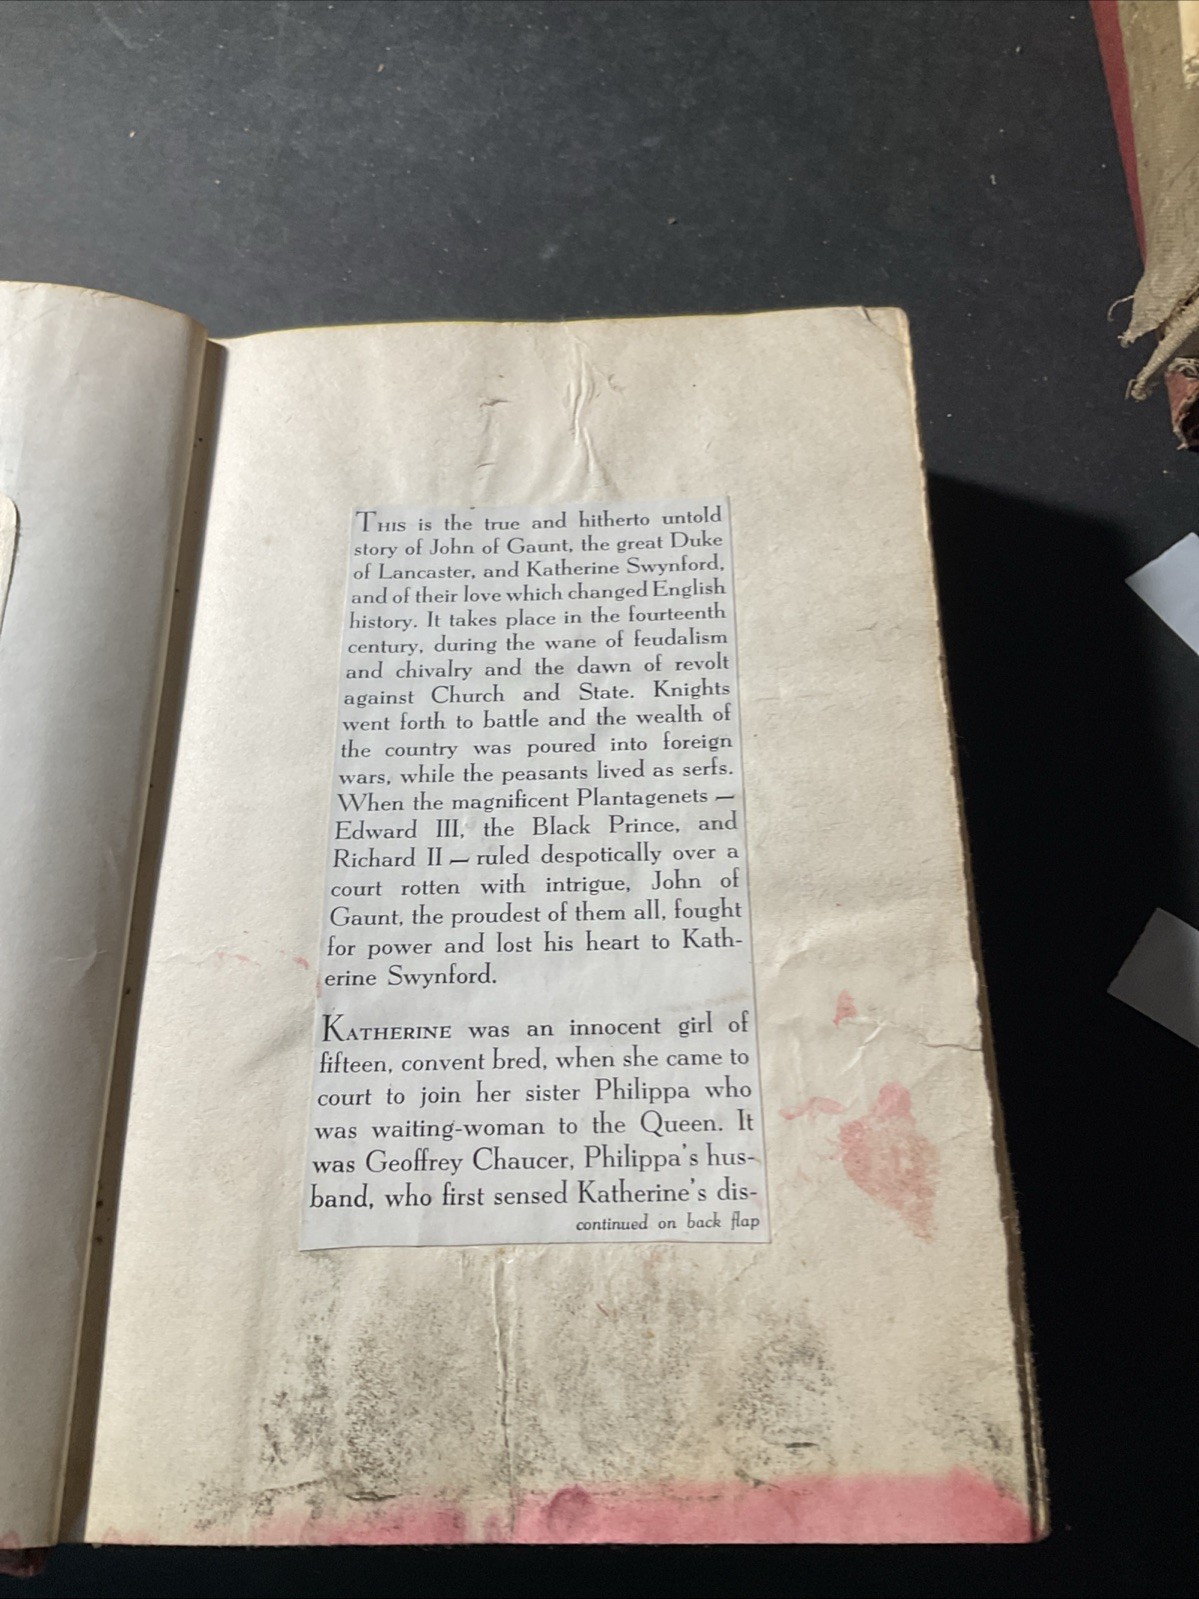 THIS is the true and hitherto untold
story of John of Gaunt, the great Duke
of Lancaster, and Katherine Swynford,
and of their love which changed English
history. It takes place in the fourteenth
century, during the wane of feudalism
and chivalry and the dawn of revolt
against Church and State. Knights
went forth to battle and the wealth of
the country was poured into foreign
wars, while the peasants lived as serfs.
When the magnificent Plantagenets —
Edward III, the Black Prince, and
Richard II — ruled despotically over a
court rotten with intrigue, John of
Gaunt, the proudest of them all, fought
for power and lost his heart to Kath-
erine Swynford.
KATHERINE was an innocent girl of
fifteen, convent bred, when she came to
court to join her sister Philippa who
was waiting-woman to the Queen. It
was Geoffrey Chaucer, Philippa's hus-
band, who first sensed Katherine's dis-
continued on back flap